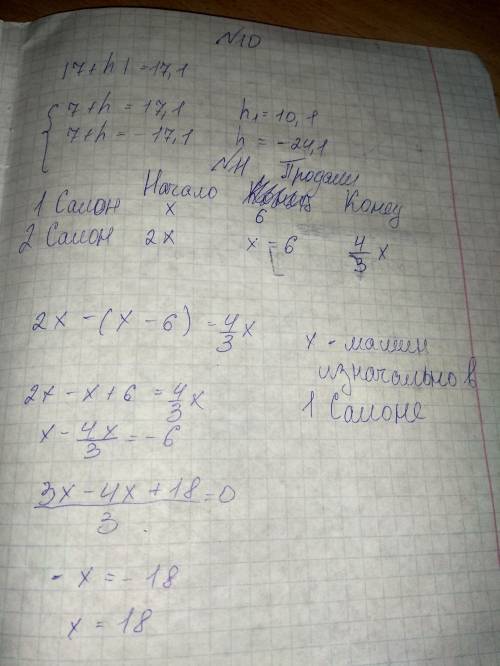 N10
|7+h|=17,1
7+h = 17,1 h₁=10,1
7+h = -17,1 h = -24,1
N11 Продали
Начало Конец
1 Салон x 6
2 Салон 2x x = 6 4/3 x
2x - (x - 6) = 4/3 x
x - машин
изначально в
1 Салоне
2x - x + 6 = 4/3 x
x - 4x/3 = -6
3x - 4x + 18/3 = 0
- x = - 18
x = 18